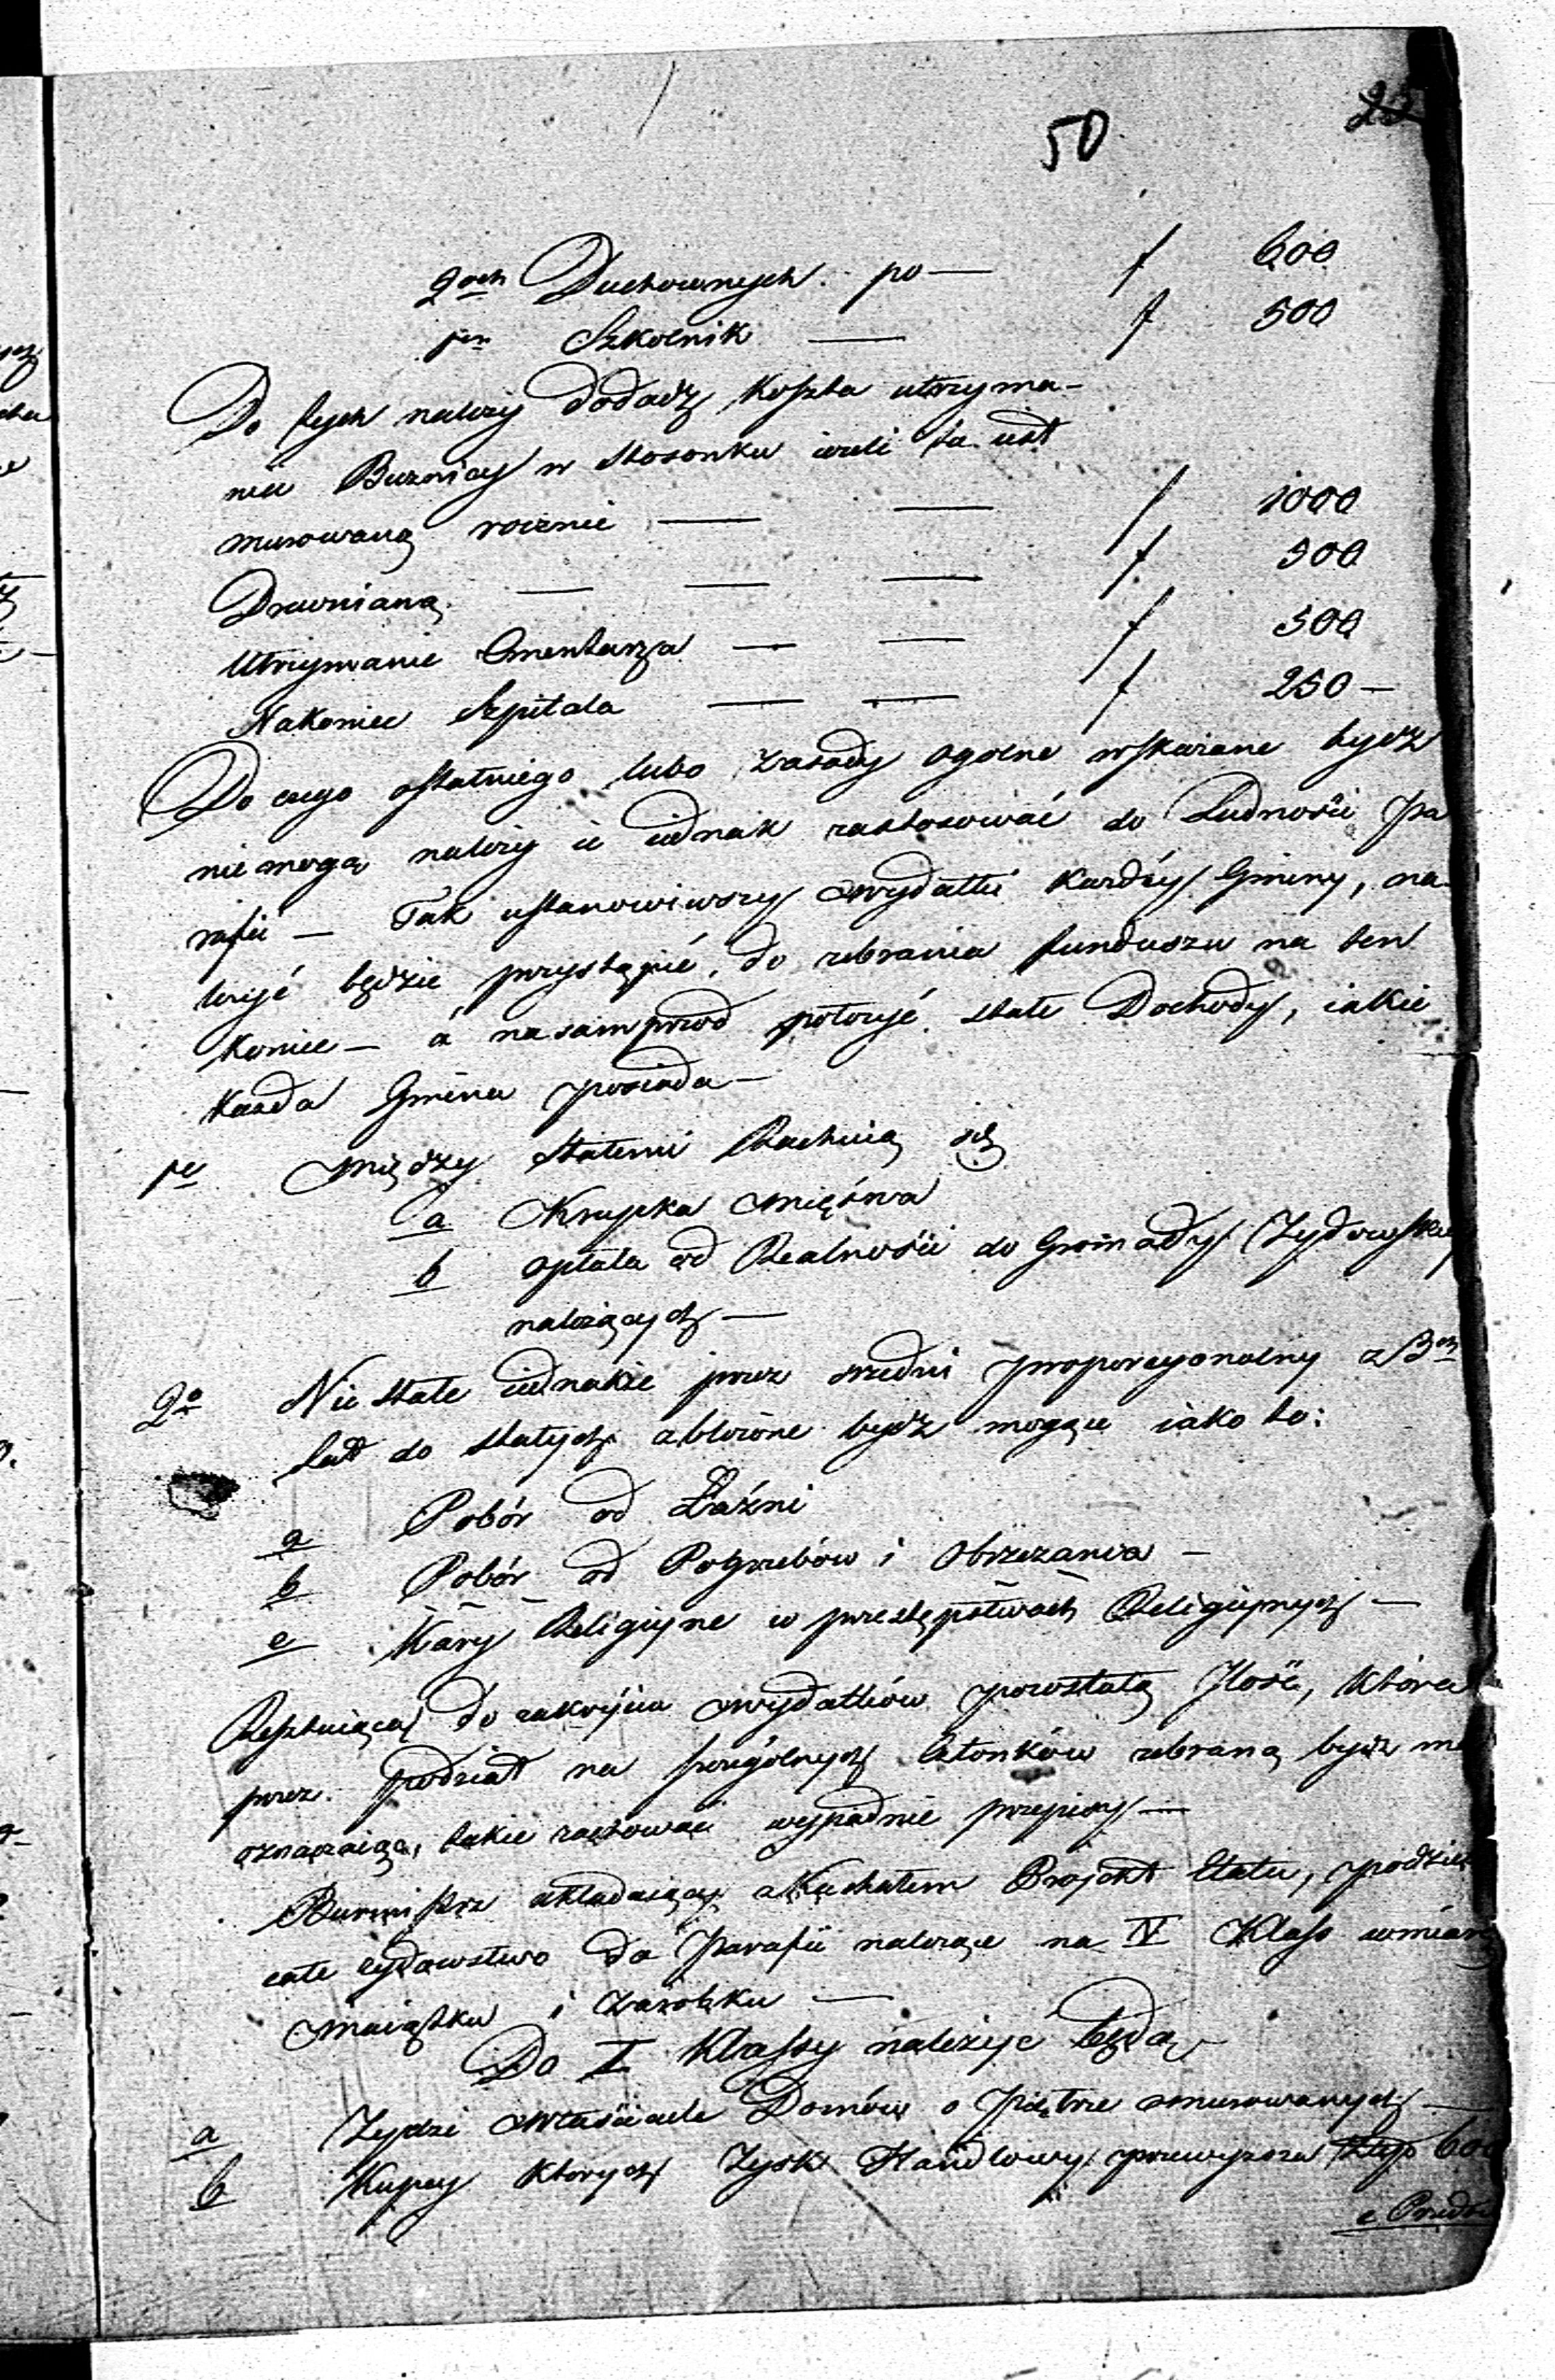 50
22
2och Duchownych po — f 600
1en Szkolnik — f 500
Do tych należy dodadz koszta utrzyma-
nia Buznicy w stosonku ieżeli ta iest
murowaną rocznie — — f 1000
Drewnianą — — — f 500
Utrzymanie Cmentarza — — f 500
Nakoniec Szpitala — — f 250 —
Do czego ostatniego lubo zasady ogolne wskazane bydz
nie mogą należy ie iednak zastosować do Ludności Pa
rafii — Tak ustanowiwszy wydatki każdéy Gminy, na-
leżyć będzie przystąpić do zebrania funduszu na ten
koniec — á nasamprzod położyć stałe Dochody, iakie
każda Gmina posiada —
1e Między stałemi Rachuią się
a Krupka mięsna
b opłata od Realności do Gromady Zydowskiey
należących —
2o Nie stałe iednakże przez średni proporcyonalny z 3ch
lat do stałych obliczone bydz mogące iako to:
a Pobór od Łaźni
b Pobór od Pogrzebów i Obrzezania —
c Kary Religiyne w przestępstwach Religiynych —
Resztuiącą do zakrycia wydatków pozostałą Ilość, która
przez podział na szczególnych Członków zebraną bydz ma
oznaczaiąc, takie zachować wypadnie przepisy —
Burmistrz układaiący z Kachałem Projekt Etatu, podzieli
całe żydowstwo do Parafii należące na IV Klass w miarę
Maiątku i zarobku —
Do I Klassy należyć będą
a Zydzi Właściciele Domów o Piętrze murowanych —
b Kupcy których Zysk Handlowy przewyższa Złp 600
c